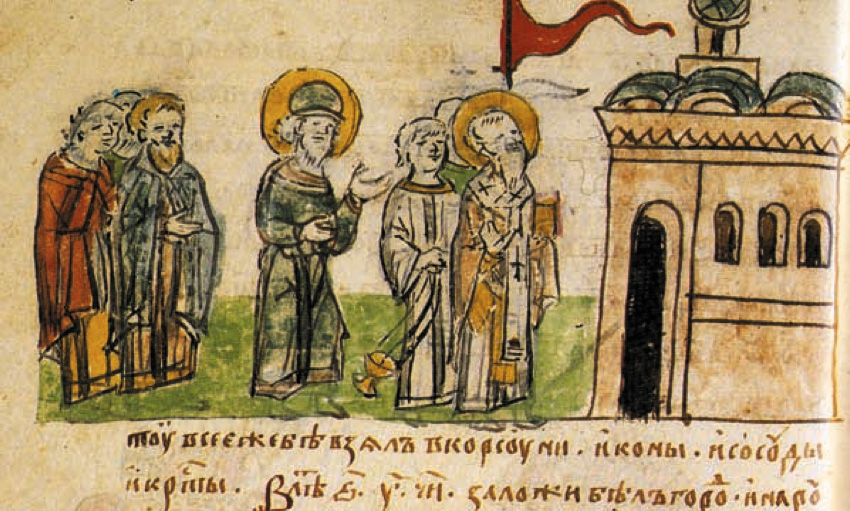 тоу всеежебѣ взялъ вкорсоуни · иконы · исосоуды
икрⷭты · Влⷮѣ ҂ѕ҃ · у҃ · заложи бѣлъгороⷣ · инаро